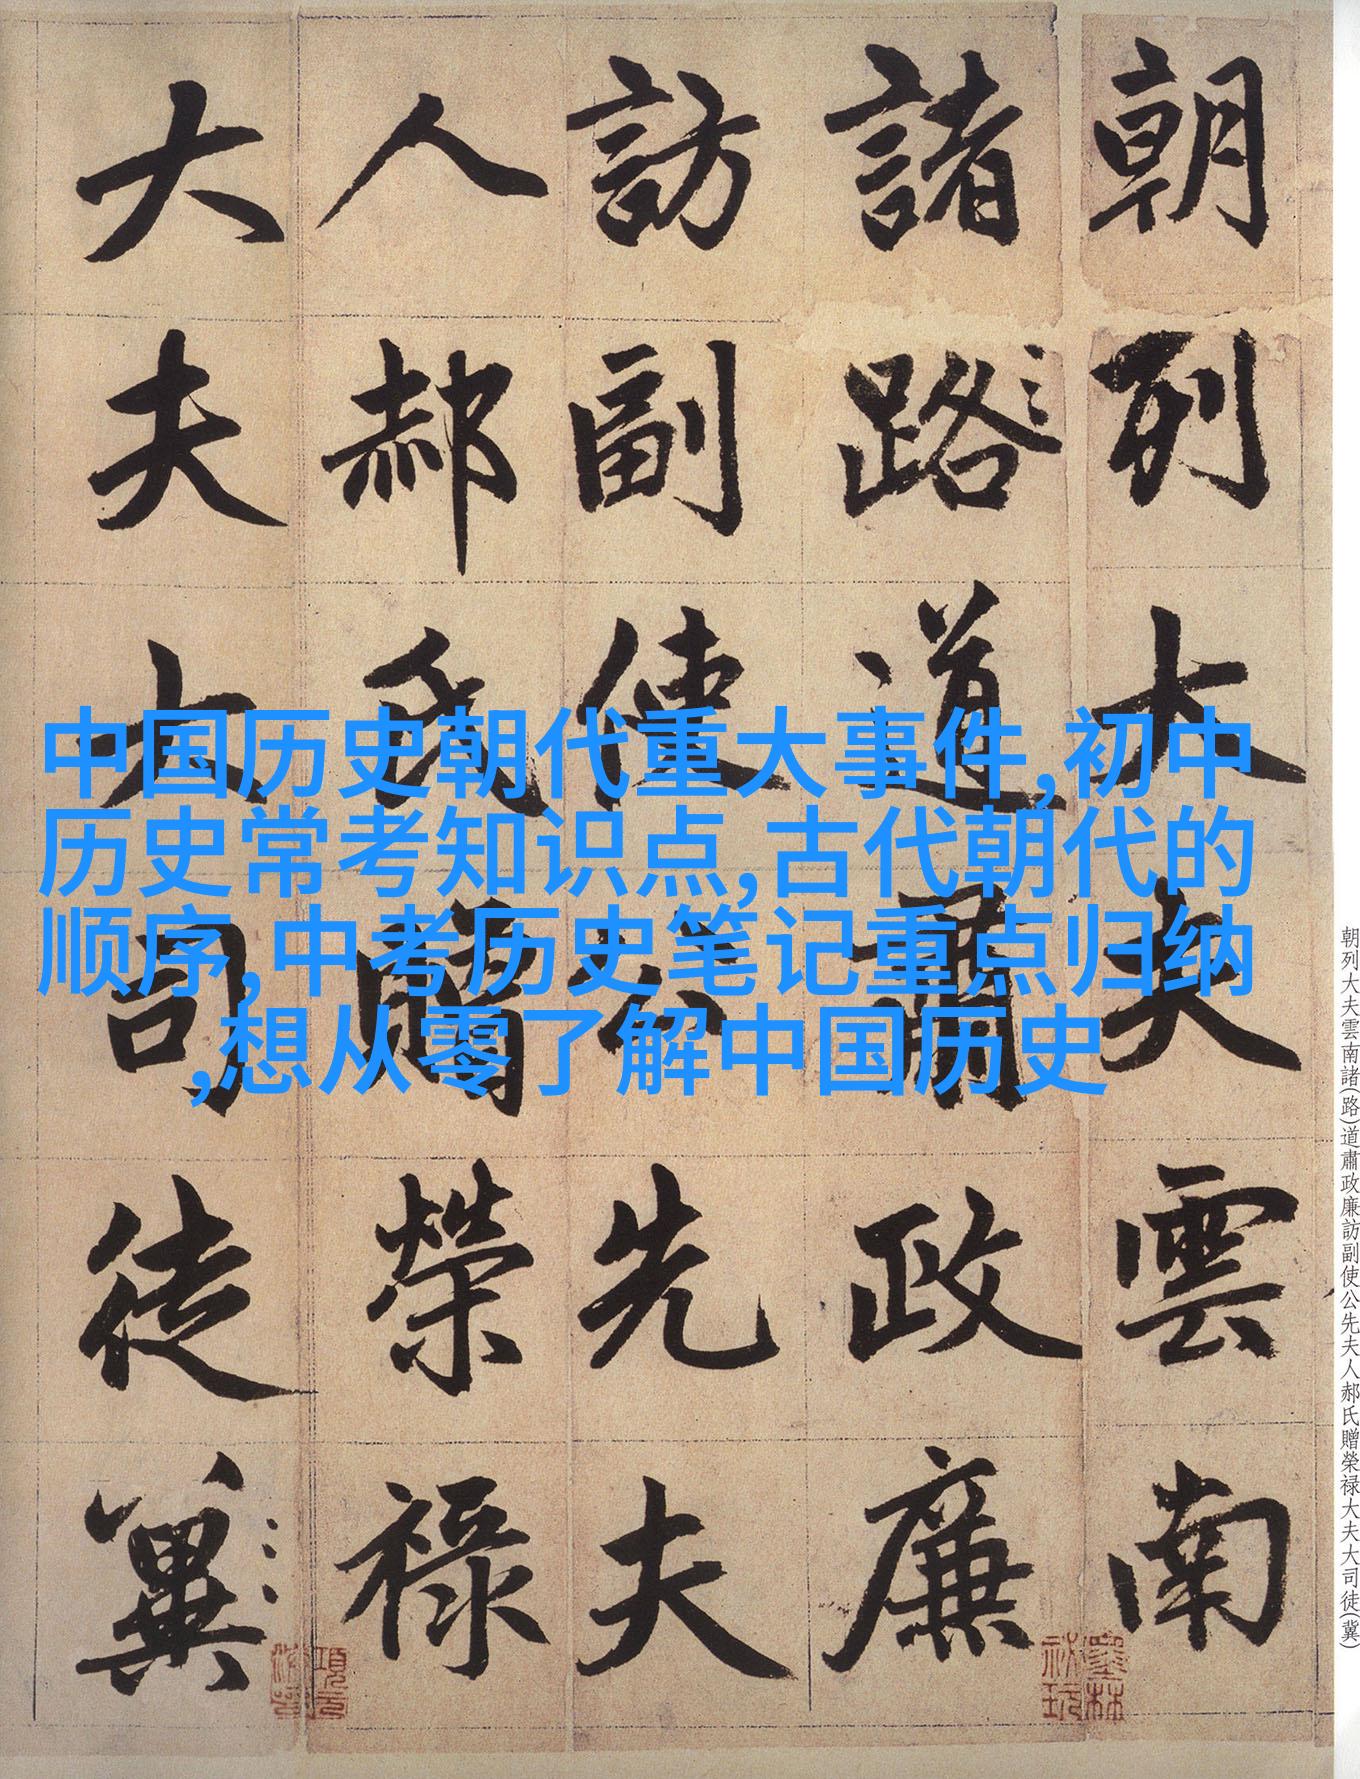 朝列大夫雲南諸(路)道肅政廉訪副使公先夫人郝氏贈榮禄大夫大司徒(冀)
朝列大夫雲南
諸路道肅政廉
訪副使公先夫
人郝氏贈榮祿
大夫大司徒冀
中国历史朝代重大事件,初中
历史常考知识点,古代朝代的
顺序,中考历史笔记重点归纳
,想从零了解中国历史
墨林
祕玩
項元
汴印